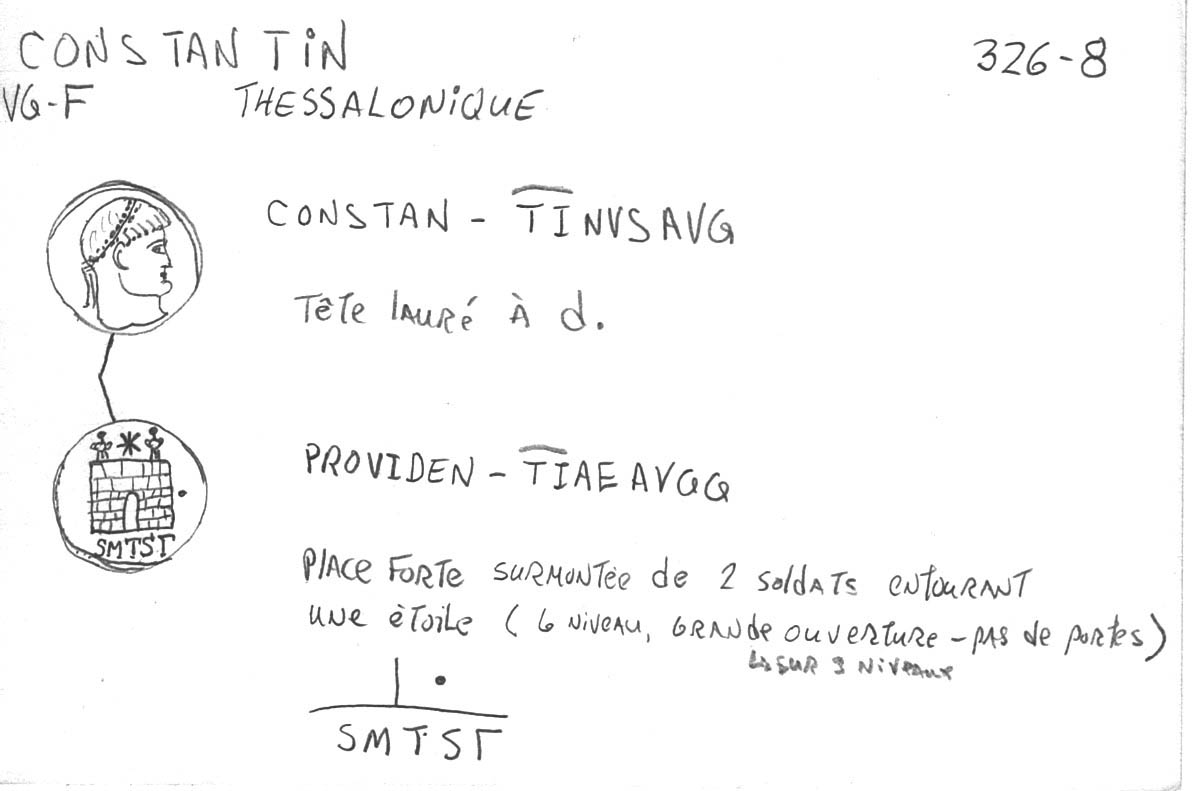 CONSTANTIN
326-8
VG-F THESSALONIQUE
CONSTAN - TINVSAVG
Tête lauré à d.
PROVIDEN - TIAE AVGG
SMTSΓ
Place forte surmontée de 2 soldats entourant
une ètoile (6 niveau, grande ouverture - pas de portes)
↳ sur 3 niveaux
SMTSΓ